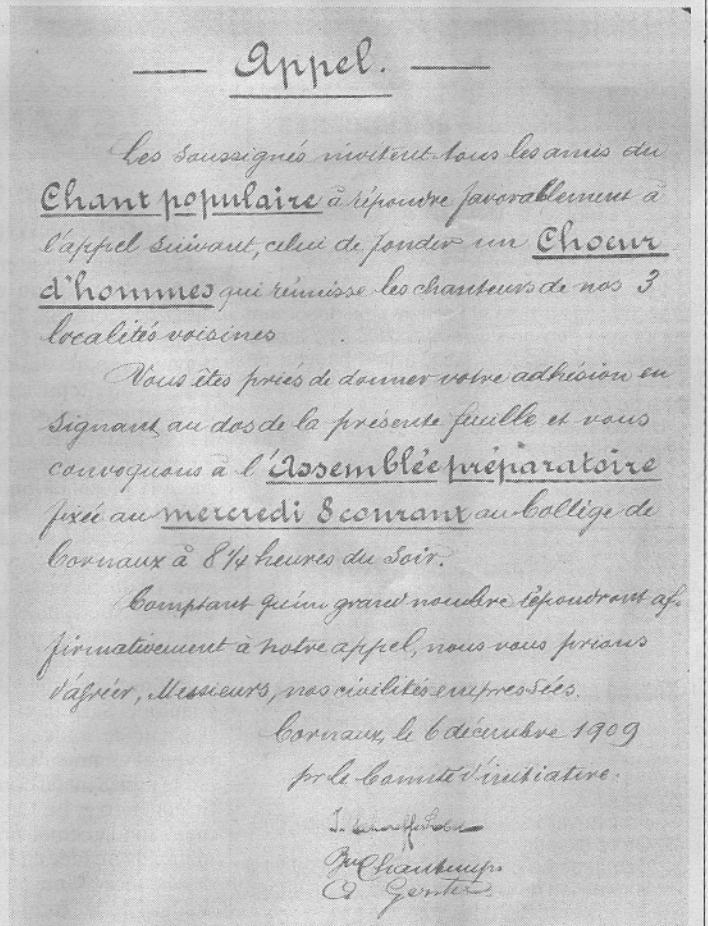 Appel.
Les soussignés invitent tous les amis du
Chant populaire à répondre favorablement à
l'appel suivant, celui de fonder un Choeur
d'hommes qui réunisse les chanteurs de nos 3
localités voisines
Vous êtes priés de donner votre adhésion en
signant au dos de la présente feuille et vous
convoquons à l'Assemblée préparatoire
fixée au mercredi 8 courant au Collège de
Cornaux à 8 1/4 heures du soir.
Comptant qu'un grand nombre répondront af-
firmativement à notre appel, nous vous prions
d'agréer, Messieurs, nos civilités empressées.
Cornaux, le 6 décembre 1909
pr le Comité d'initiative.
Chantemps